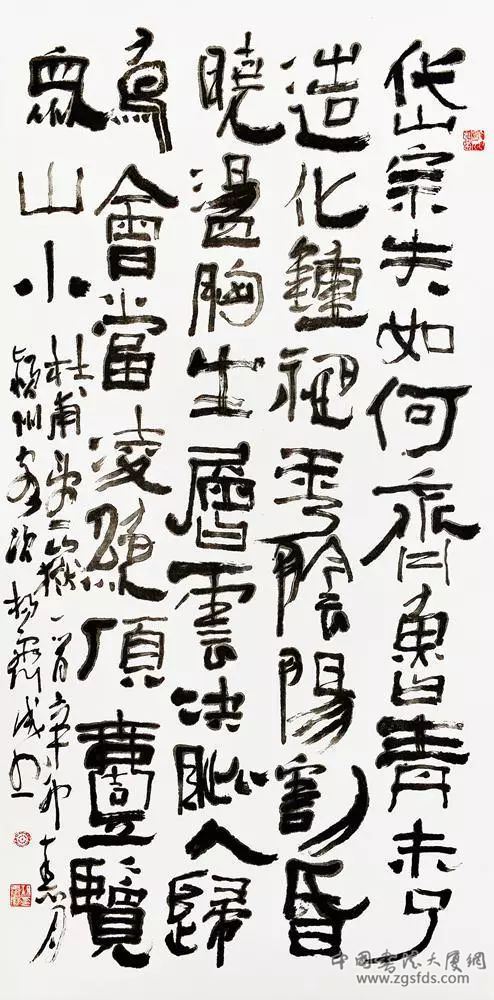 岱宗夫如何齊魯青未了
造化鍾神秀陰陽割昏
曉盪胸生層雲決眦入歸
鳥會當凌絕頂壹覽
眾山小
杜甫望嶽一首辛卯春月
潁州
中国書法大厦網
www.zgsfds.com